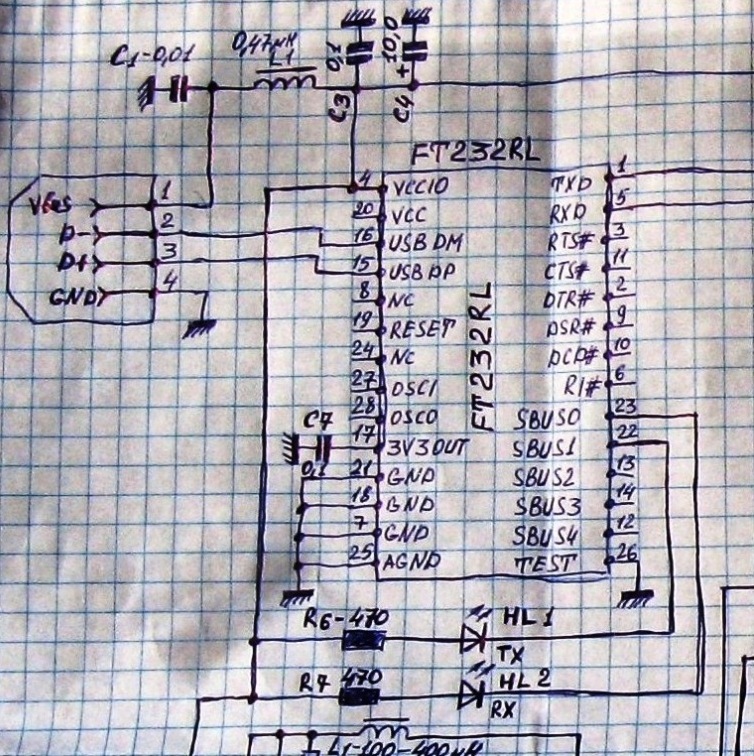 C1-0,01
0,47мН
L1
C3 0,1
C4 + 10,0
FT232RL
D- 2
D+ 3
GND 4
1
4 VCCIO TXD 1
20 VCC RXD 5
16 USBDM RTS# 3
15 USBDP CTS# 11
8 NC DTR# 2
19 RESET DSR# 9
24 NC DCD# 10
27 OSCI RI# 6
28 OSCO SBUS0 23
17 3V3OUT SBUS1 22
21 GND SBUS2 13
18 GND SBUS3 14
7 GND SBUS4 12
25 AGND TEST 26
FT232RL
C7
0,1
R6-470 HL1
TX
R7 470 HL2
RX
L1-100-400мН